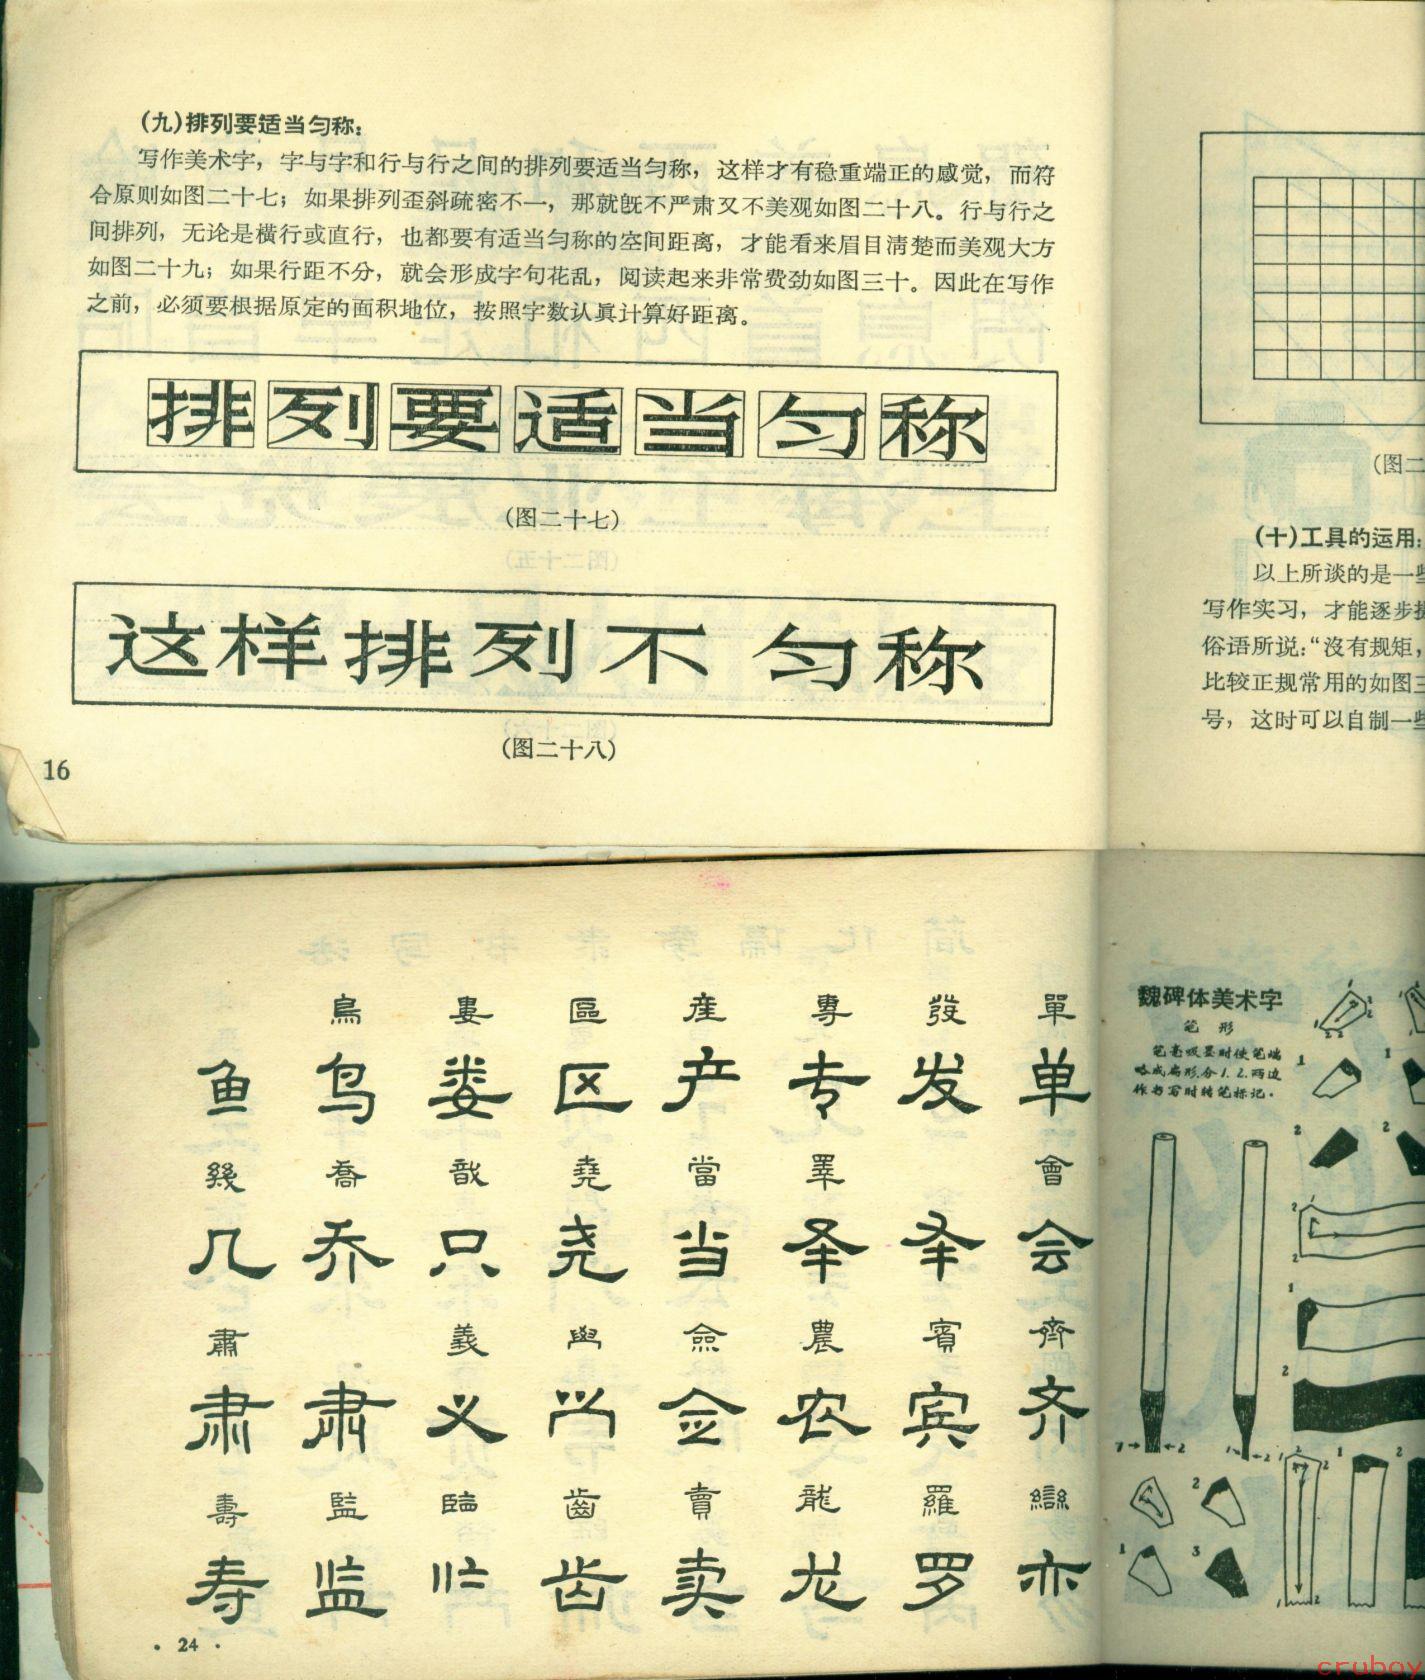 (九)排列要适当匀称：
写作美术字，字与字和行与行之间的排列要适当匀称，这样才有稳重端正的感觉，而符
合原则如图二十七；如果排列歪斜疏密不一，那就旣不严肃又不美观如图二十八。行与行之
间排列，无论是横行或直行，也都要有适当匀称的空间距离，才能看来眉目清楚而美观大方
如图二十九；如果行距不分，就会形成字句花乱，阅读起来非常费劲如图三十。因此在写作
之前，必须要根据原定的面积地位，按照字数认真计算好距离。
排列要适当匀称
(图二十七)
这样排列不匀称
(图二十八)
16
(图二
(十)工具的运用：
以上所谈的是一些
写作实习，才能逐步提
俗语所说：“沒有规矩，
比较正规常用的如图三
号，这时可以自制一些
鳥 婁 區 產 專 發 單
鱼 鸟 娄 区 产 专 发 单
幾 喬 戠 堯 當 睪 會
几 乔 只 尧 当 泽 会
肅 義 僉 農 賓 齊
肃 肃 义 佥 农 宾 齐
壽 監 臨 齒 賣 龍 羅 䜌
寿 监 齿 卖 龙 罗 亦
· 24 ·
魏碑体美术字
笔形
笔毫吸墨时使笔端
略成扁形分1.2.两边
作书写时转笔标记。
cruboy